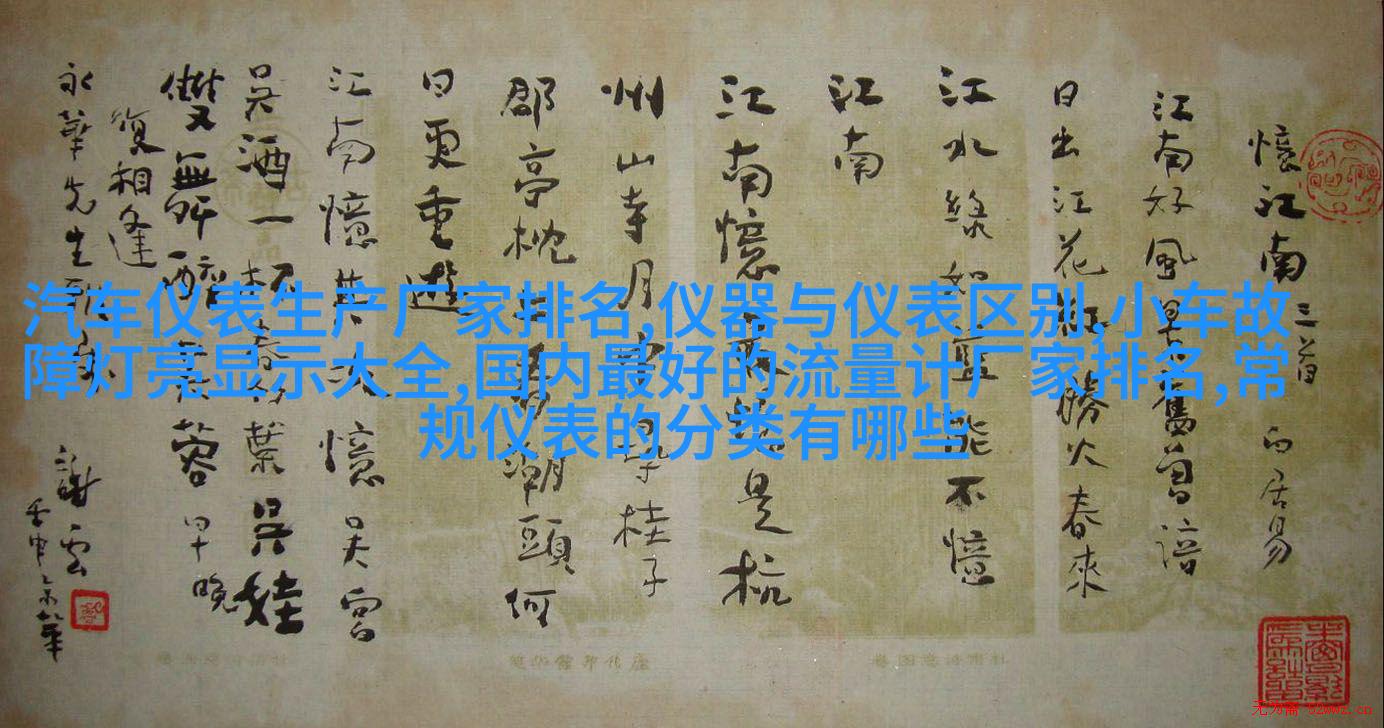 憶江南 三首 白居易
江南好風景舊曾諳
日出江花紅勝火春來
江水綠如藍能不憶
江南
江南憶最憶是杭
州山寺月中尋桂子
郡亭枕上看潮頭何
日更重遊
江南憶其次憶吳宮
吳酒一杯春竹葉吳娃
雙舞醉芙蓉早晚
復相逢
永華先生
謝雲
汽车仪表生产厂家排名,仪器与仪表区别,小车故
障灯亮显示大全,国内最好的流量计厂家排名,常
规仪表的分类有哪些
无为斋 52wwz.cn